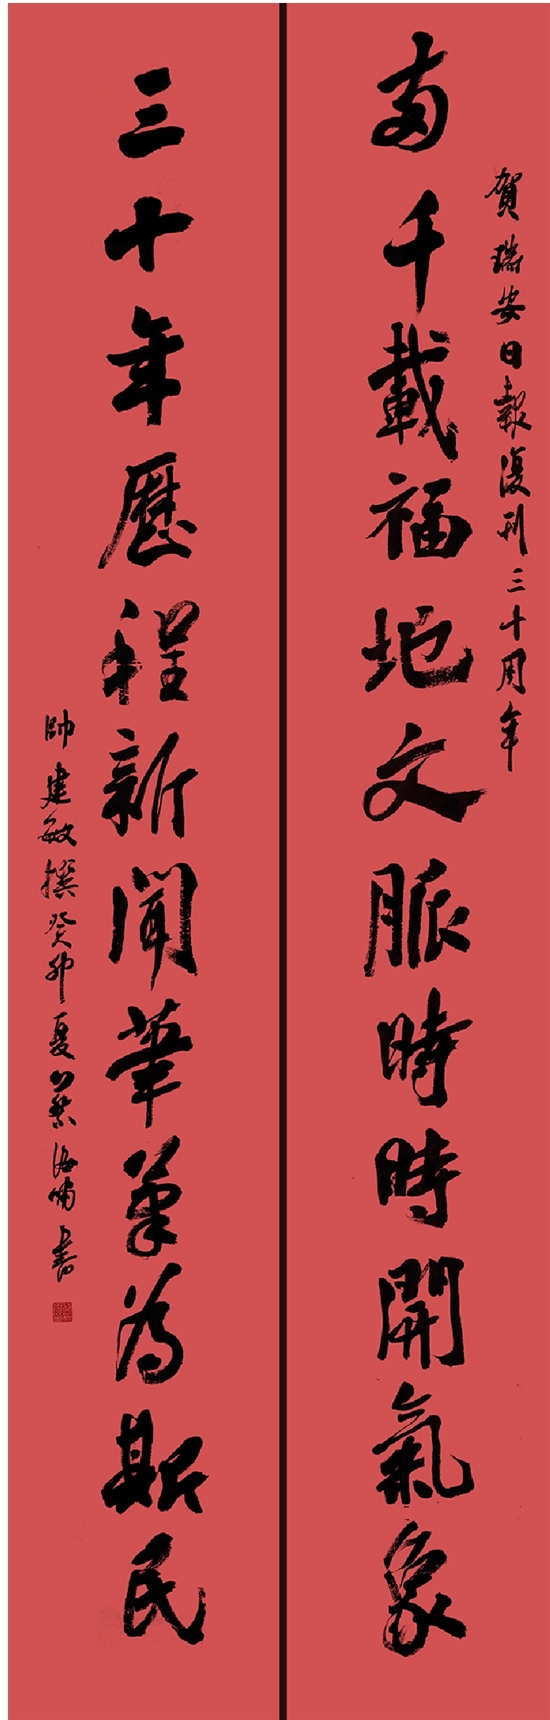 賀瑞安日報復刊三十周年
兩千載福地文脈時時開氣象
三十年歷程新聞筆筆為斯民
帥建敏撰癸卯夏蔡海嘯書